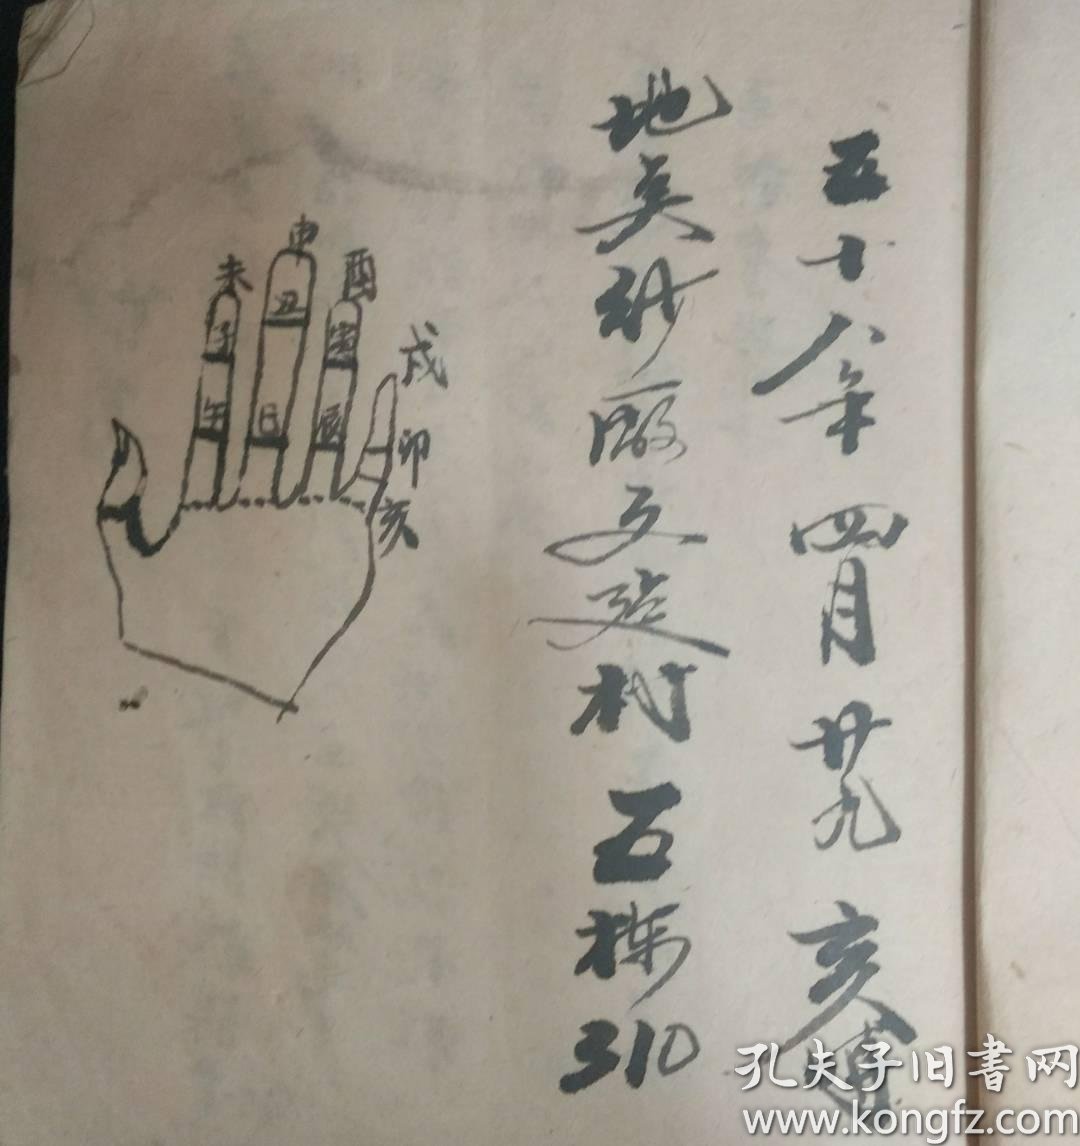 五十八年四月廿九亥
地点纱廠文建村五栋310
申
未
酉
丑
子
寅
戌
午
巳
辰
卯
亥
孔夫子旧書网
www.kongfz.com